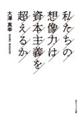 私たちの
想像力は
資本主義を
超えるか
大澤真幸